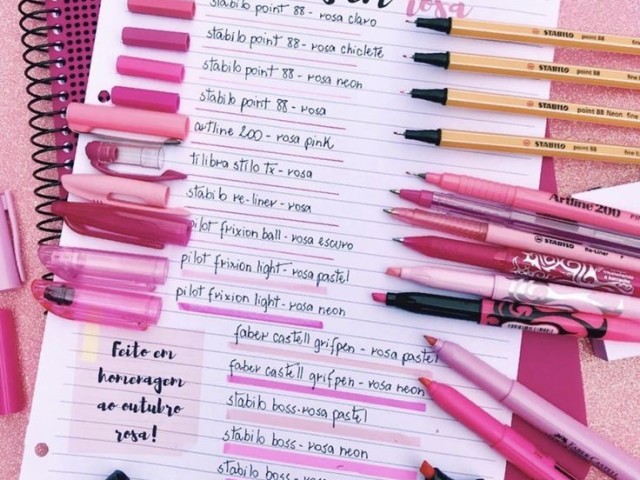 rosa
stabilo point 88 - rosa claro
stabilo point 88 - rosa chiclete
stabilo point 88 - rosa neon
stabilo point 88 - rosa
artline 200 - rosa pink
tilibra stilo tx - rosa
stabilo re-liner - rosa
pilot frixion ball - rosa escuro
pilot frixion light - rosa pastel
pilot frixion light - rosa neon
faber castell grifpen - rosa pastel
faber castell grifpen - rosa neon
stabilo boss - rosa pastel
stabilo boss - rosa neon
stabilo boss - rosa
Feito em
homenagem
ao outubro
rosa!
STABILO point 88
STABILO point 88
STABILO point 88 Neon
STABILO point 88
Artline 200
STABILO Re-Liner